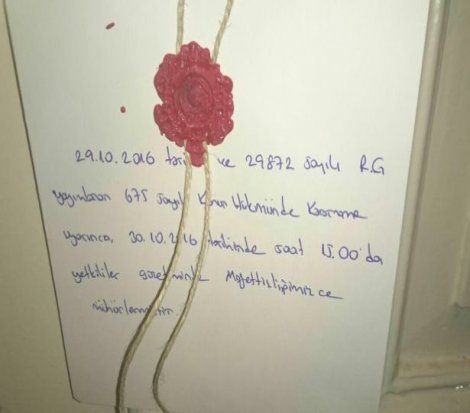 29.10.2016 tari ve 29872 sayılı R.G
yayımlanan 675 sayılı Kanun Hükmünde Kararname
uyarınca, 30.10.2016 tarihinde saat 15.00'da
yetkililer Müfettişliğimizce
mühürlenmiştir.